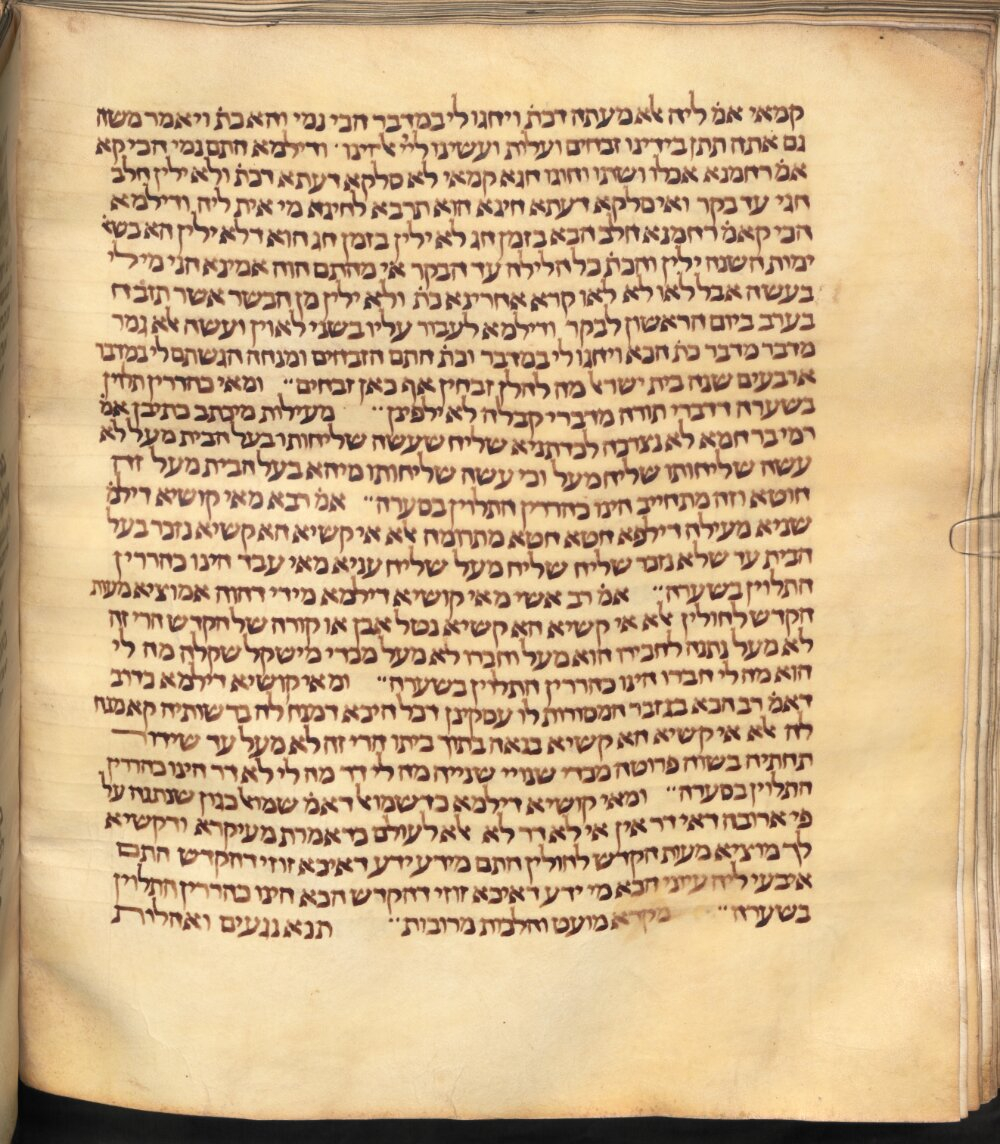 קמאי אמ׳ ליה אלא מעתה דכת׳ ויחגו לי במדבר הכי נמי והא כת׳ ויאמר משה
גם אתה תתן בידינו זבחים ועלות ועשינו לייי אלהינו · ודילמא התם נמי הכי קא
אמ׳ רחמנא אכלו ושתו וחוגו חגא קמאי לא סלקא דעתא דכת׳ ולא ילין חלב
חגי עד בקר ואי סלקא דעתא חיגא הוא תרבא לחיגא מי אית ליה ודילמא
הכי קאמ׳ רחמנא חלב הבא בזמן חג לא ילין בזמן חג הוא דלא ילין הא בשא׳
ימות השנה ילין והכת׳ כל הלילה עד הבקר אי מהתם הוה אמינא הני מילי
בעשה אבל לאו לא לאו קרא אחרינא כת׳ ולא ילין מן הבשר אשר תזבח
בערב ביום הראשון לבקר ודילמא לעבור עליו בשני לאוין ועשה אלא גמר
מדבר מדבר כת׳ הכא ויחגו לי במדבר וכת׳ התם הזבחים ומנחה הגשתם לי במדבר
ארבעים שנה בית ישראל מה להלן זבחין אף כאן זבחים ״ ומאי כהררין תלוין
בשערה דדברי תורה מדברי קבלה לא ילפינן ״ מעילות מיכתב כתיבן אמ׳
רמי בר חמא לא נצרכה לכדתניא שליח שעשה שליחותו בעל הבית מעל לא
עשה שליחותו שליח מעל וכי עשה שליחותו מיהא בעל הבית מעל זה
חוטא וזה מתחייב הינו כהררין התלוין בסערה ״ אמ׳ רבא מאי קושיא דילמ׳
שניא מעילה דילפא חטא חטא מתרומה אלא אי קשיא הא קשיא נזכר בעל
הבית עד שלא נזכר שליח שליח מעל שליח עניא מאי עבד הינו כהררין
התלוין בשערה ״ אמ׳ רב אשי מאי קושיא דילמא מידי דהוה אמוציא מעות
הקדש לחולין אלא אי קשיא הא קשיא נטל אבן או קורה של הקדש הרי זה
לא מעל נתנה לחבירו הוא מעל וחברו לא מעל מכדי מישקל שקלה מה לי
הוא מה לי חברו הינו כהררין התלוין בשערה ״ ומאי קושיא דילמא כדרב
דאמ׳ רב הכא בגזבר המסורות לו עסקינן דכל היכא דמנח לה ברשותיה קא מנח
לה אלא אי קשיא הא קשיא בנאה בתוך ביתו הרי זה לא מעל עד שידור
תחתיה בשוה פרוטה מכדי שנויי שנייה מה לי דר מה לי לא דר הינו כהררין
התלוין בסערה ״ ומאי קושיא דילמא כדשמואל דאמ׳ שמואל כגון שנתנה על
פי ארובה דאי דר אין אי לא דר לא אלא לעולם כדאמרת מעיקרא ודקשיא
לך מוציא מעות הקדש לחולין התם מידע ידע דאיכא זוזי דהקדש התם
איבעי ליה עייני הכא מי ידע דאיכא זוזי דהקדש הכא הינו כהררין התלוין
בשערה ״ מקרא מועט והלכות מרובות ״ תנא נגעים ואהלות